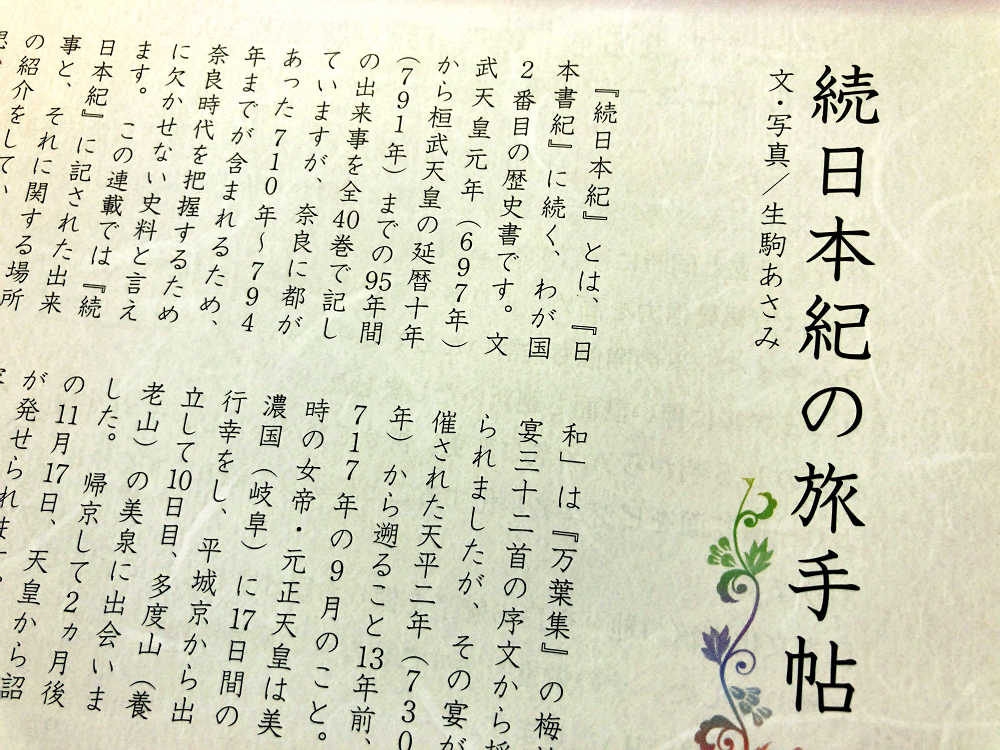 続日本紀の旅手帖
文・写真／生駒あさみ
『続日本紀』とは、『日
本書紀』に続く、わが国
2番目の歴史書です。文
武天皇元年（697年）
から桓武天皇の延暦十年
（791年）までの95年間
の出来事を全40巻で記し
ていますが、奈良に都が
あった710年〜794
年までが含まれるため、
奈良時代を把握するため
に欠かせない史料と言え
ます。　この連載では『続
日本紀』に記された出来
事と、それに関する場所
の紹介をしてい
和」は『万葉集』の梅
宴三十二首の序文から
られましたが、その宴が
催された天平二年（730
年）から遡ること13年前、
717年の9月のこと。
時の女帝・元正天皇は美
濃国（岐阜）に17日間の
行幸をし、平城京から出
立して10日目、多度山（養
老山）の美泉に出会いま
した。　帰京して2ヵ月後
の11月17日、天皇から詔
が発せられます。